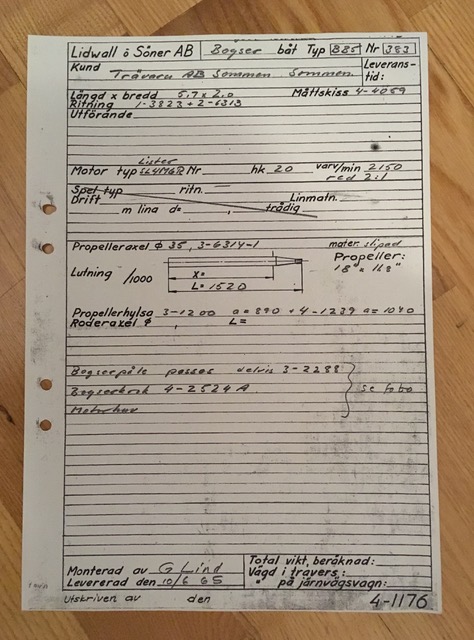 Lidwall & Söner AB Bogser båt Typ B85 Nr 383
Kund Trävaru AB Sommen. Sommen. Leverans-
tid:
Längd x bredd 5.7 x 2.0 Måttskiss 4-4059
Ritning 1-3823 + 2-6313
Utförande
Lister
Motor typ SL4MGR Nr hk 20 varv/min 2150
red 2:1
Spel typ ritn. —
Drift Linmatn.
m lina d= , trådig
Propelleraxel φ 35, 3-6314-1 mater. slipad
Propeller:
18" x 16.8"
Lutning /1000 x=
L= 1520
Propellerhylsa 3-1200 a= 890 + 4-1239 a= 1040
Roderaxel φ , L=
Bogserpåle passas delvis 3-2288
Bogserkrok 4-2524A se foto
Motorhuv
Monterad av G Lind
Levererad den 10/6 65
Total vikt, beräknad:
Vägd i travers:
" på järnvägsvagn:
Utskriven av den
4-1176